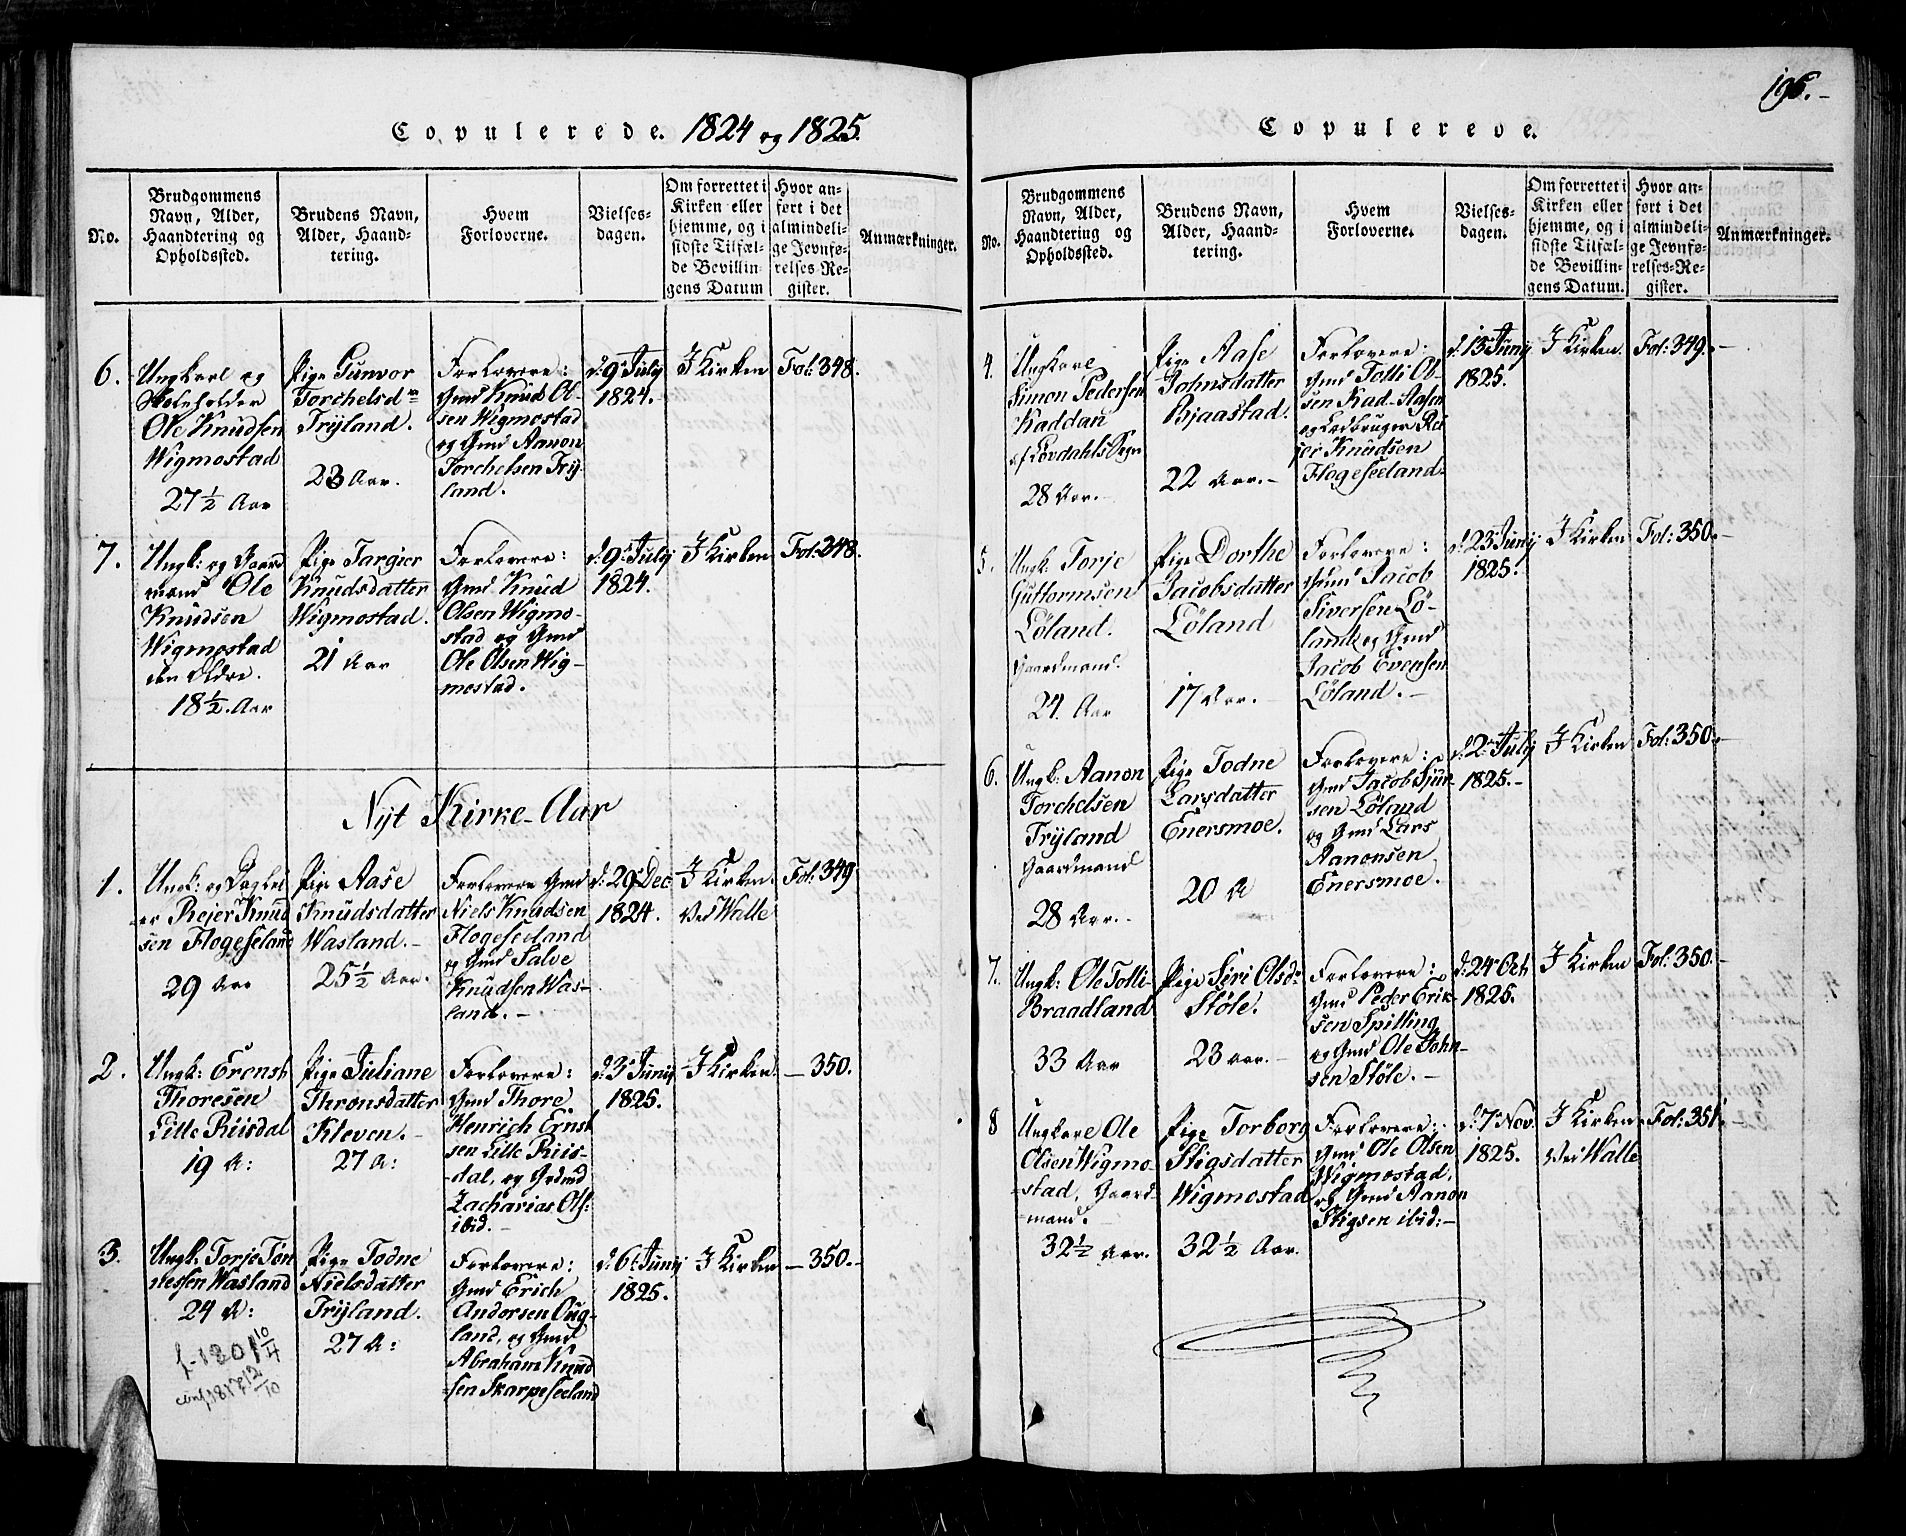 196.-
Copulerede. 1824 og 1825.
No.
Brudgommens
Navn, Alder,
Haandtering og
Opholdssted.
Brudens Navn,
Alder, Haand-
tering.
Hvem
Forloverne.
Vielses-
dagen.
Om forrettet i
Kirken eller
hjemme, og i
sidste Tilfæl-
de Bevillin-
gens Datum
Hvor an-
ført i det
almindeli-
ge Jevnfø-
relses-Re-
gister.
Anmærkninger.
6.
Ungkarl og
Skoleholder
Ole Knudsen
Wigmostad
27 ½ Aar
Pige Gunvor
Torchelsdr
Trÿland.
23 Aar.
Forlovere:
Gmd Knud Ol-
sen Wigmostad
og Gmd Aanon
Torchelsen Trÿ-
land.
d: 9de Julÿ
1824.
I Kirken
Fol: 348.
7.
Ungk: og Gaard
mand Ole
Knudsen
Wigmostad
den Eldre.
18 ½. Aar
Pige Targier
Knudsdatter
Wigmostad.
21 Aar
Forlovere:
Gmd Knud
Olsen Wigmo-
stad og Gmd
Ole Olsen Wig-
mostad.
d: 9de Julÿ
1824.
I Kirken
Fol: 348.
Nÿt Kirke-Aar
1.
Ungk: og
Rejer Knud
sen Flogeseland
29 Aar
Pige Aase
Knudsdatter
Wasland.-
25 ½ Aar.
Forlovere Gmd
Niels Knudsen
Flogeseeland
og Gmd Salve
Knudsen Was-
land.-
d: 29de Dec
1824.
I Kirken.
Ved Walle
Fol: 349
2.
Ungk: Ernst
Thoresen
Lille Riisdal
19 A:
Pige Juliane
Thronsdatter
Kleven.-
27 A:
Forlovere:
Gmd Thore
Henrich Ernst
sen Lille Riis-
dal, og
Zacharias Ols:
ibid.-
d: 3de Junÿ
1825.
I Kirken.
- 350.
3.
Ungk: Torje Tøn
nessen Wasland
24 A:
f-1801 10/4
conf. 1817 12/10
Pige Todne
Nielsdatter
Trÿland.
27 A:
Forlovere:
Gmd Erich
Andersen Oug-
land, og Gmd
Abraham Knud
-sen Skarpeseeland
d: 6te Junÿ
1825.
I Kirken
- 350.-
Copulerede.
No.
Brudgommens
Navn, Alder,
Haandtering og
Opholdssted.
Brudens Navn,
Alder, Haand-
tering.
Hvem
Forloverne.
Vielses-
dagen.
Om forrettet i
Kirken eller
hjemme, og i
sidste Tilfæl-
de Bevillin-
gens Datum.
Hvor an-
ført i det
almindeli-
ge Jevnfø-
relses-Re-
gister.
Anmærkninger.
4.
Ungkarl
Simon Pedersen
Kaddan
af Løvdahls Sogn
28 Aar.-
Pige Aase
Johnsdatter
Bjaastad.
22 Aar.-
Forlovere:
Gmd Tolli Ol-
sen Kad-Aasen
og Ledbruger Rei
jer Knudsen
Flogeseeland.
d. 13de Junÿ
1825.
I Kirken.
Fol: 349.-
5.
Ungk. Torje
Guttormsen
Løland.
Gaardmand.
24. Aar
Pige Dorthe
Jacobsdatter
Løland
17 Aar.-
Forlovere:
Gmd Jacob
Siversen Lø-
land, og Gmd
Jacob Evensen
Løland.-
d. 23 Junÿ
1825.
I Kirken
Fol: 350.-
6.
Ungk. Aanon
Torchelsen
Trÿland
Gaardmand
28 Aar.-
Pige Todne
Larsdatter
Enersmoe.
20 A
Forlovere:
Gmd Jacob Sjur-
sen Løland
og Gmd Lars
Aanonsen
Enersmoe.
d. 2den Julÿ
1825.-
I Kirken
Fol: 350.-
7.
Ungk: Ole Tolli-
Braadland
33 Aar
Pige Siri Olsdr
Støle.
23 aar.-
Forlovere:
Gmd Peder Erik-
sen Spilling
og Gmd Ole John-
sen Støle.-
d: 24de Oct
1825.
I Kirken
Fol: 350.-
8
Ungkarl Ole
Olsen Wigmo-
-stad, Gaard-
-mand.-
32 ½ Aar.
Pige Torborg
Stigsdatter
Wigmostad
32 ½ Aar.
Forlovere:
Gmd Ole Olsen
Wigmostad,
og Gmd Aanon
Stigsen ibid:-
d. 7de Nov.
1825.
I Kirken
Ved Walle
Fol: 351.-